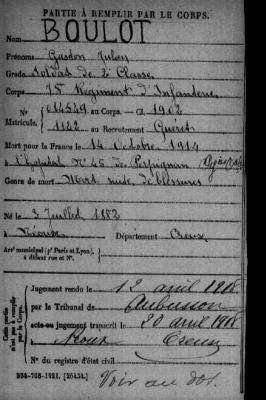 PARTIE À REMPLIR PAR LE CORPS.
Nom BOULOT
Prénoms Gaston Julien
Grade Soldat de 2e Classe
Corps 75 Régiment d'Infanterie
N° 014529 au Corps. — Cl 1902
Matricule. 1142 au Recrutement Guéret
Mort pour la France le 14 Octobre 1914
à l'hôpital N° 45 de Perpignan
Genre de mort Mort suite de blessures
Né le 3 Juillet 1882
à Département Creuse
Arrt municipal (pr Paris et Lyon),
à défaut rue et N°.
Cette partie n'est pas à remplir par le Corps.
Jugement rendu le 12 avril 1918
par le Tribunal de Aubusson
acte ou jugement transcrit le 20 avril 1918
à Creuse
N° du registre d'état civil
534-708-1921. [26434.]
Voir au dos.